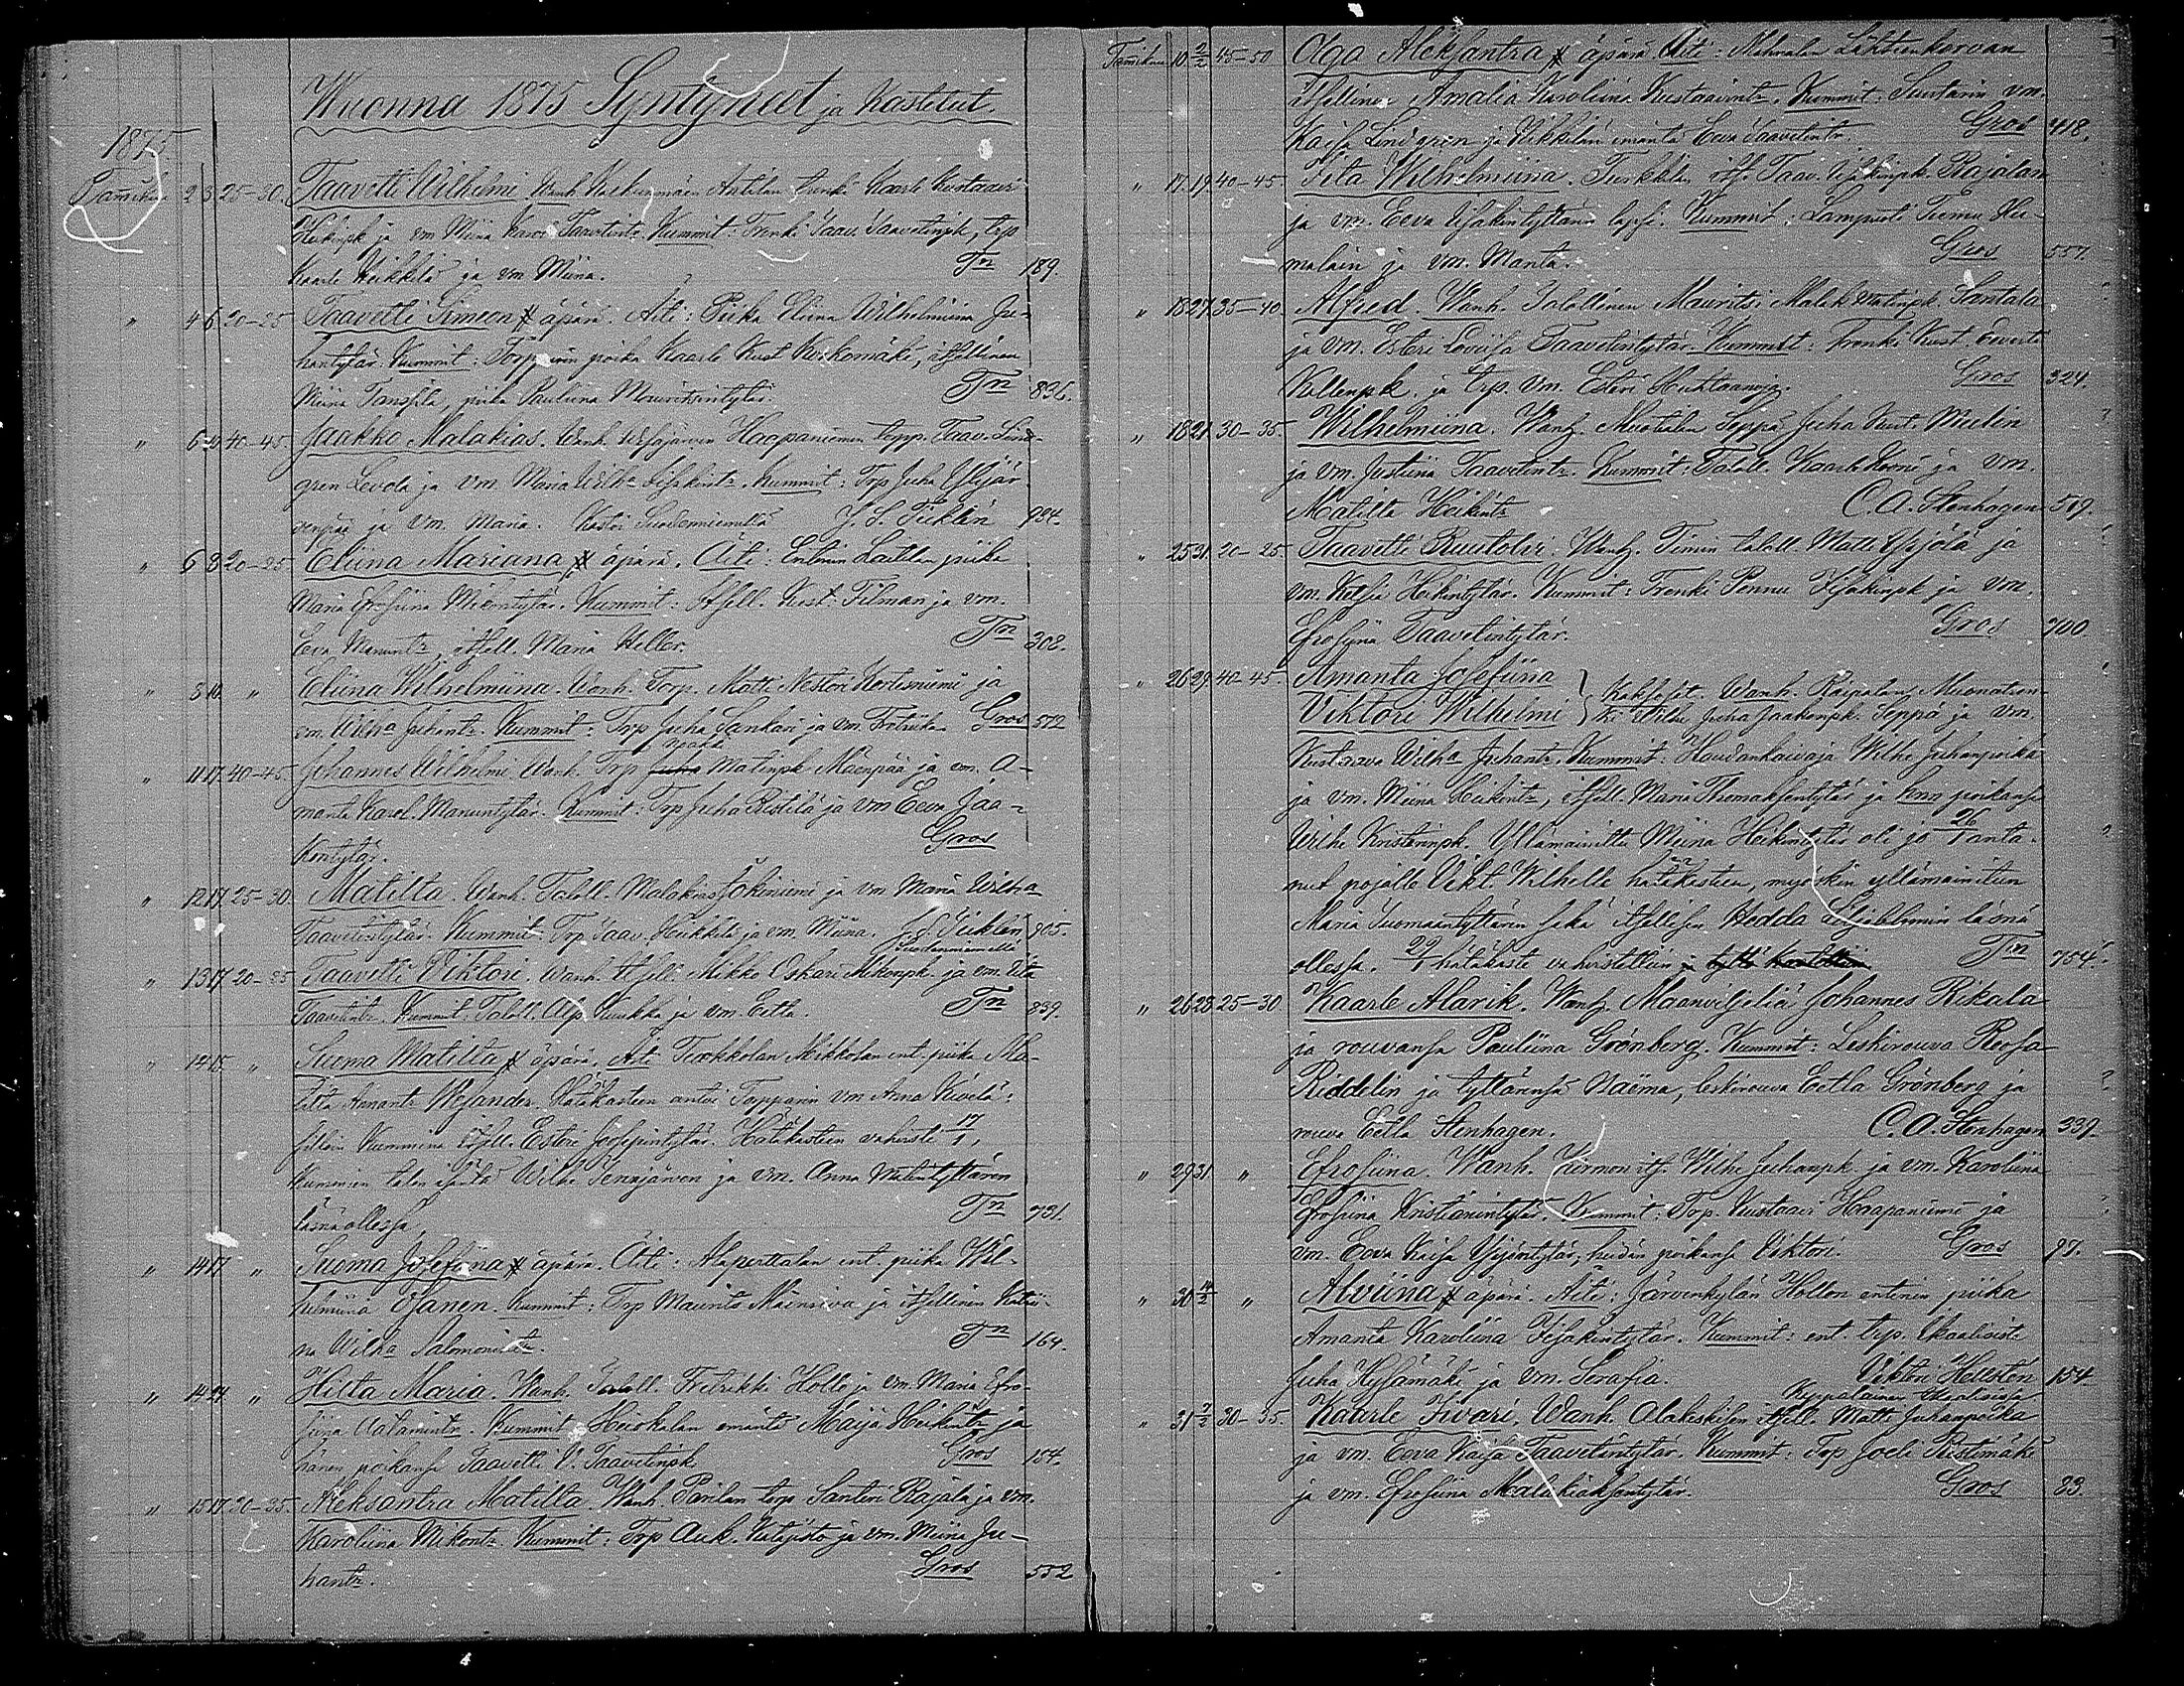 Wuonna 1875 Syntyneet ja Kastetut
1875.
Tammik. 2 3 25-30. Taavetti Wilhelmi. Wanh. Antilan trenki Kaarle Kustaavi
Heikinpk ja vm Miina Taavetintr. Kummit: Trenki Taav. Taavetinpk, trp
Kaarle Heikkilä ja vm Miina. Tn 189.
" 4 6 20-25 Taavetti Simeon äpärä. Äiti: Piika Eliina Wilhelmiina Ju-
hantytär. Kummit: Torpparin poika Kaarle Kust Koskomäki, itsellinen
Miina Tanssila, piika Pauliina Mauritsintytär. Tn 836.
" 6 40-45 Jaakko Malakias. Wanh. Haapaniemen torpp. Taav. Lind-
gren Levola ja vm Maria Wilha . Kummit: Trp Juha Ylijär-
venpää ja vm. Maria. Kastoi Suodenniemellä J. S. Ticklén 984.
" 6 8 20-25 Eliina Mariana äpärä. Äiti: Entinen piika
Maria Efrosiina Mikontytär. Kummit: Itsell. Kust. Tilman ja vm.
Eeva Manuntr, itsell. Maria Heller. Tn 302.
" 8 10. " Eliina Wilhelmiina. Wanh. Torp. Matti Nestori Kortesniemi ja
vm. Wilha Juhantr. Kummit: Trp Juha Sankari ja vm. Fretrika Gros 572
" 11 17. 40-45 Johannes Wilhelmi. Wanh. Trp Juha Matinpk Mäenpää ja vm. A-
manta Karol. Manuntytär. Kummit: Trp Juha Ristilä ja vm Eeva Jaa-
kontytär. Gros
" 12 17. 25-30. Matilta. Wanh. Taloll. Malakias Jokiniemi ja vm Maria Wilha
Taavetintytär. Kummit: Trp Taav. Heikkilä ja vm. Miina. J. S. Ticklén 905.
Suodenniemellä
" 13 17 20-25 Taavetti Viktori. Wanh. Itsell. Mikko Oskari Mikonpk. ja vm. Iita
Taavetintr. Kummit: Taloll. Alp. Kuukka ja vm. Eetla. Tn 839.
" 14 15. " Suoma Matilta äpärä. Äiti Turkkolan Mikkolan ent. piika Ma-
tilta Amantr Wesander. Hätäkasteen antoi Topparin vm Anna Kivelä:
silloin kummina itsell. Esteri Joosepintytär. Hätäkasteen vahviste 17/1,
kummien talon isäntä Wilhe Tennjärven ja vm. Anna Matintyttären
läsnäollessa. Tn 731.
" 14 17 " Suoma Josefiina äpärä. Äiti: Alaperttalan ent. piika Wil-
helmiina Ojanen. Kummit: Trp Maurits Mäensivu ja itsellinen Katrii-
na Wilha Salomonintr. Tn 164.
" 14 " Hilta Maria. Wanh. Taloll. Fretrikki Hollo ja vm. Maria Efro-
siina Aatamintr. Kummit: Heiskalan emäntä Maija Heikintr ja
hänen poikansa Taavetti V. Taavetinpk Gros 154.
" 15 17 20-25. Aleksantra Matilta. Wanh. Parilan torp Santeri Rajala ja vm.
Karoliina Mikontr. Kummit: Trp Auk. Katajisto ja vm. Miina Ju-
hantr. Gros 552
Tammikuu 10 2/2 45-50 Olga Aleksantra äpärä. Äiti: Mahnalan Lähteenkorvan
itsellinen Amalia Karoliina Kustaavintr. Kummit: Suutarin vm.
Kaisa Lindgren ja Pikkilän emäntä Eeva Taavetintr. Gros 418.
" 17. 19. 40-45. Iita Wilhelmiina. Turkkilan its. Taav. Iisakinpk. Rajalan
ja vm. Eeva Iisakintyttären lapsi. Kummit: Lampuoti Tuomu Hu-
malain ja vm. Manta. Gros 557.
" 18 27. 35-40. Alfred. Wanh. Talollinen Mauritsi Malak Matinpk. Santala
ja vm. Esteri Lovisa Taavetintytär. Kummit: Trenki Kust. Eeverti
Kallenpk. ja trp. vm. Esteri Huhtaanoja. Gros 324.
" 18 21. 30-35. Wilhelmiina. Wanh. Muotialan Seppä Juha Kust. Medin
ja vm. Justiina Taavetintr. Kummit: Taloll. Kaarle Koone ja vm.
Matilta Heikintr C. A. Stenhagen 519.
" 25 31. 20-25 Taavetti Ruutolvi. Wanh. Timin taloll. Matti Yrjölä ja
vm. Kaisa Heikintytär. Kummit: Trenki Pennu Iisakinpk ja vm.
Efrosiina Taavetintytär. Gros 700.
" 26 29 40-45. Amanta Josefiina
Viktori Wilhelmi } Kaksoset. Wanh. Raipalan Muonatren-
ki Wilhe Juha Jaakonpk. Seppä ja vm.
Kustaava Wilha Juhantr. Kummit: Haudankaivaja Wilhe Juhanpoika
ja vm. Miina Heikintr, itsell. Maria Thomaksentytär ja hänen poikansa
Wilhe Kristerinpk. Yllämainittu Miina Heikintytär oli jo 26/1 anta-
nut pojalle Vikt. Wilhelle hätäkasteen, myöskin yllämainitun
Maria Tuomaantyttären sekä itsellisen Hedda läsnä
ollessa. 29/1 hätäkaste vahvistettiin Tn 754.
" 26 28 25-30. Kaarle Alarik. Wanh. Maanviljeliä Johannes Rikala
ja rouvansa Pauliina Grönberg. Kummit: Leskirouva Roosa
Riddelin ja tyttärensä Naëma, leskirouva Eetla Grönberg ja
rouva Eetla Stenhagen. C. A. Stenhagen 339.
" 29 31. " Efrosiina. Wanh. Kurmon its. Wilhe Juhanpk. ja vm. Karoliina
Efrosiina Kristianintytär. Kummit: Trp. Kustaavi Haapaniemi ja
vm. Eeva Kaisa Yrjöntytär, heidän poikansa Viktori. Gros 97.
" 30 14/2 " Alviina äpärä. Äiti: Järvenkylän Hollon entinen piika
Amanta Karoliina Iisakintytär. Kummit: ent. trp. Ikaalisista
Juha Kysämäki ja vm. Serafia. Viktori Hellstén 154
Kappalainen Ikaalisissa
" 31 7/2 30-35. Kaarle Iivari. Wanh. Alakeskisen itsell. Matti Juhanpoika
ja vm. Eeva Kaisa Taavetintytär. Kummit: Trp Joeli Ristimäki
ja vm. Efrosiina Malakiaksentytär. Gros 23.